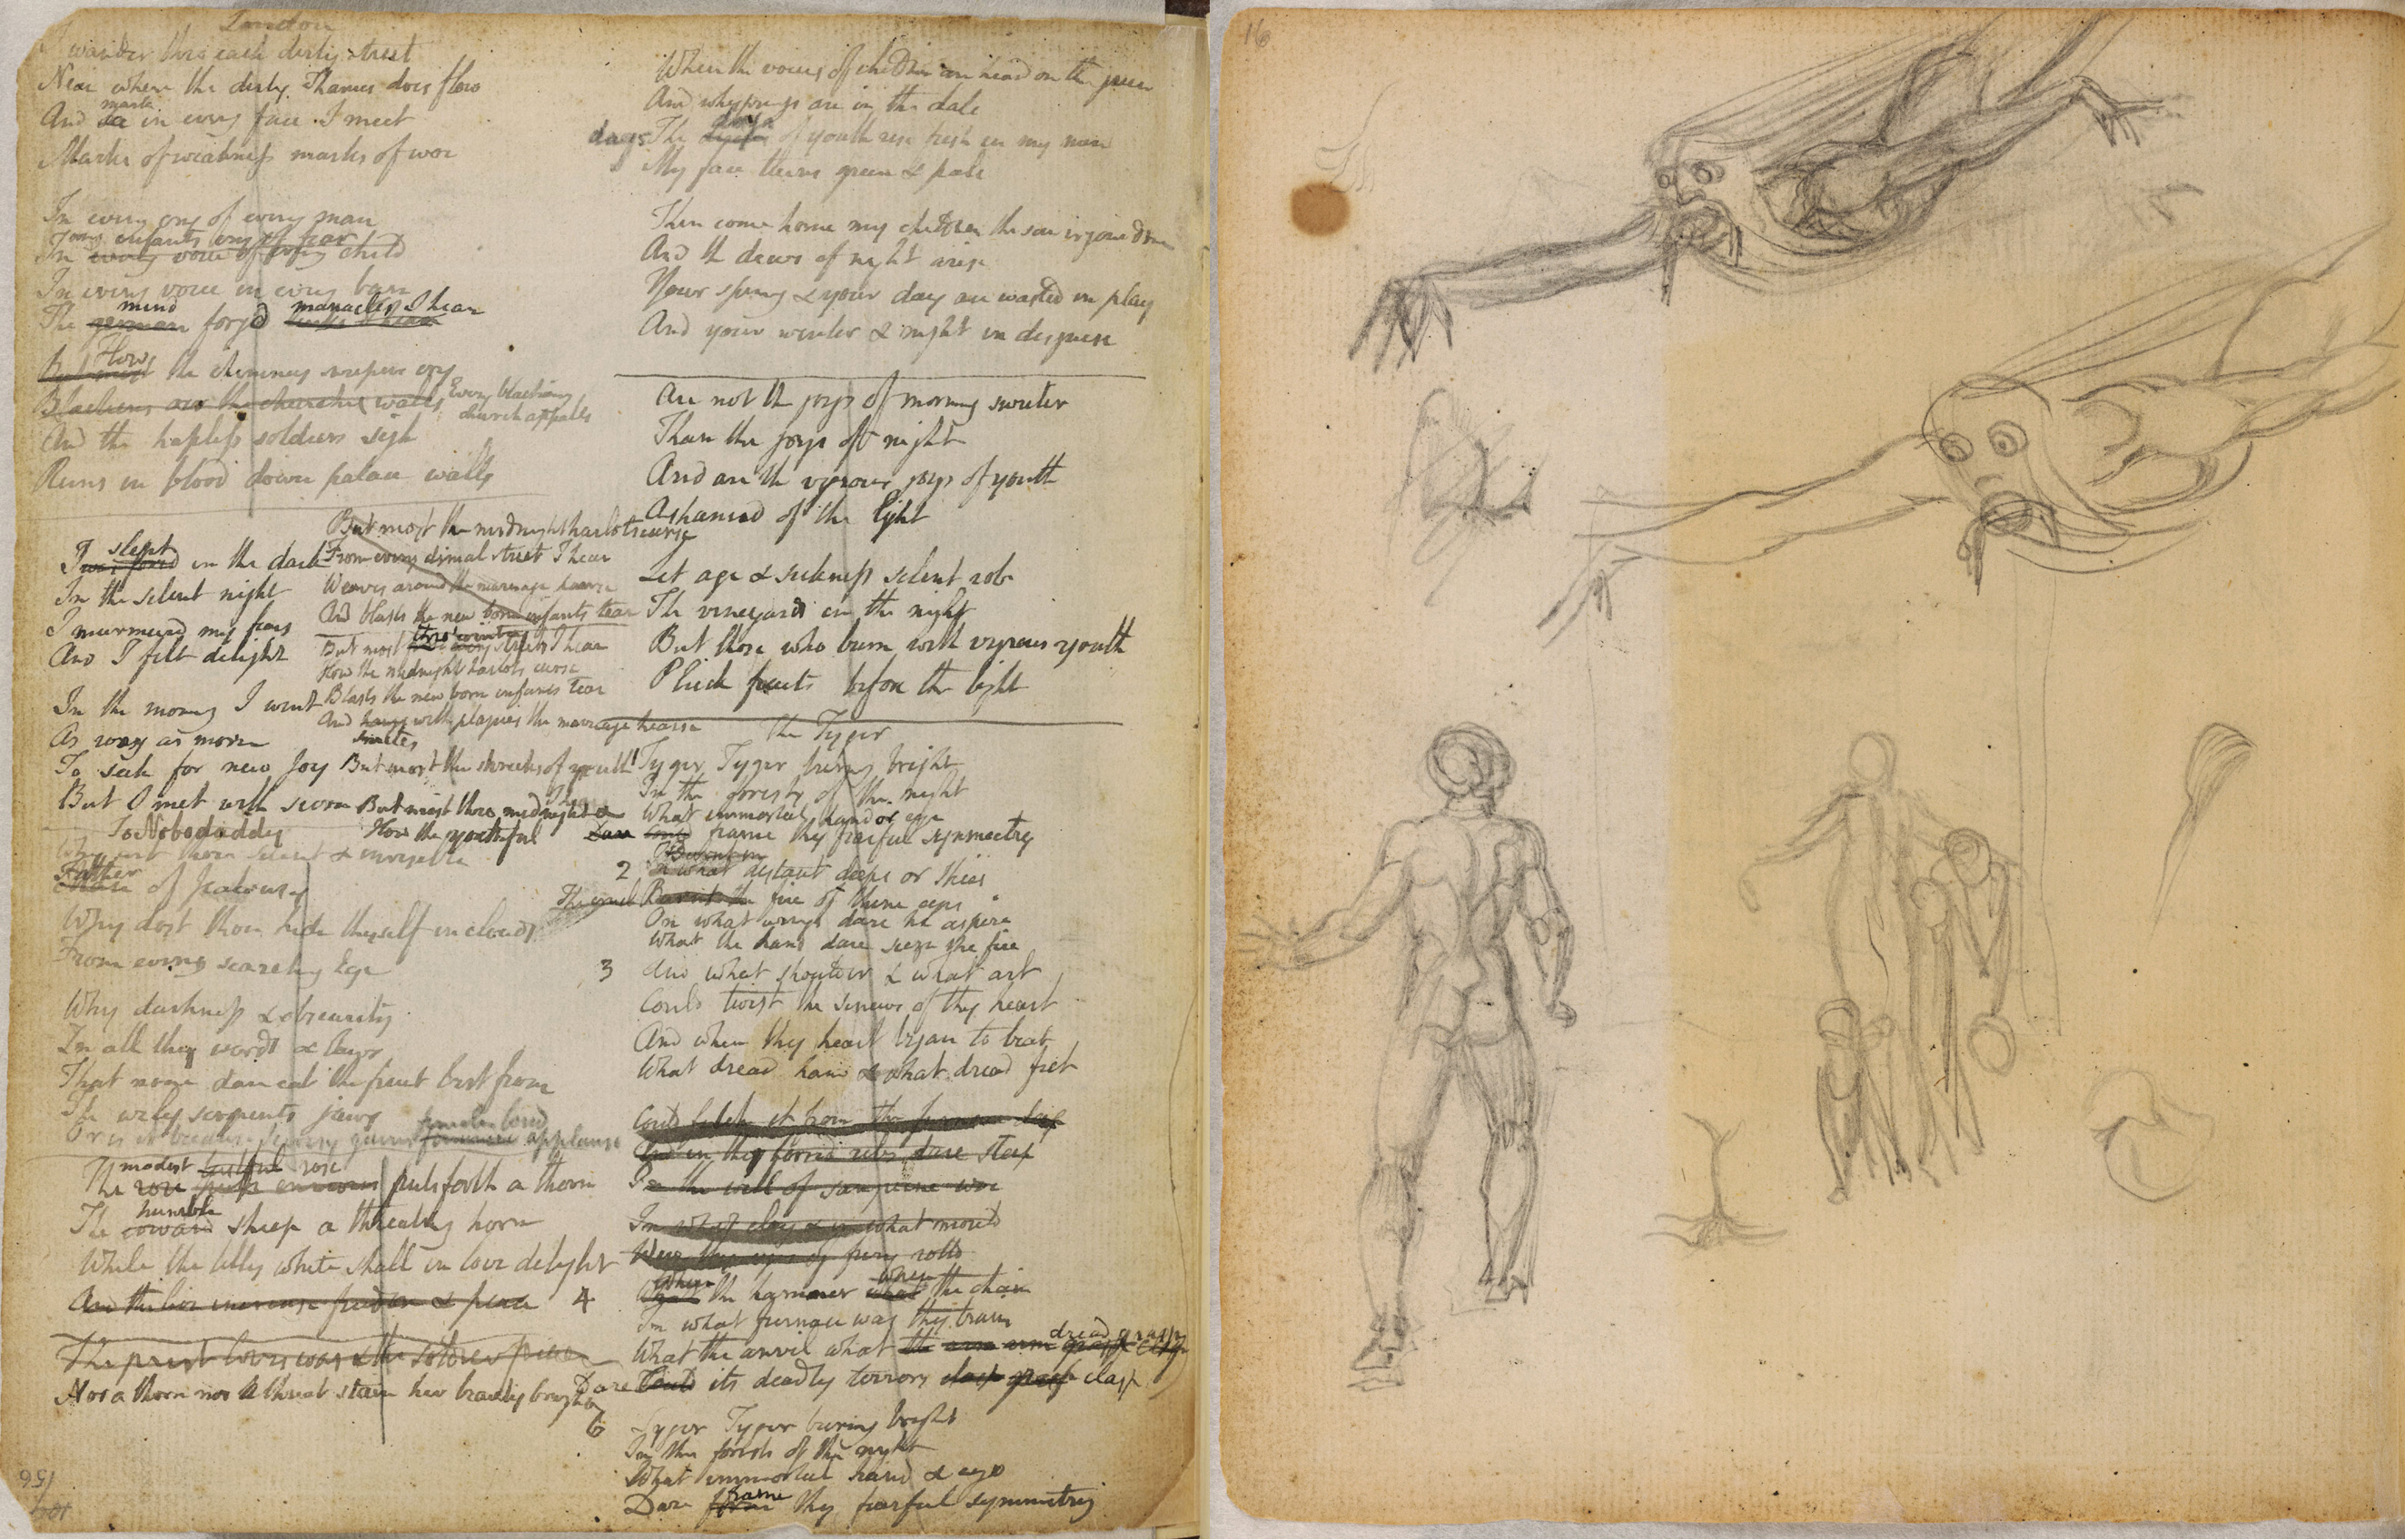 London
I wander thro each dirty street
Near where the dirty Thames does flow
mark
And see in every face I meet
Marks of weakness marks of woe
In every cry of every man
every infants cry of fear
In every voice of every child
In every voice in every ban
mind manacles I hear
The german forgd links I hear
How
But most the chimney sweepers cry
Blackens oer the churches walls Every blackning
church appalls
And the hapless soldiers sigh
Runs in blood down palace walls
But most the midnight harlots curse
From every dismal street I hear
Weaves around the marriage hearse
And blasts the new born infants tear
thro wintry
But most from every streets I hear
How the midnight harlots curse
Blasts the new born infants tear
And hangs with plagues the marriage hearse
smites
But most the shrieks of youth I
But most thro midnight &
How the youthful
slept
I was fond in the dark
In the silent night
I murmured my fears
And I felt delight
In the morning I went
As rosy as morn
To seek for new Joy
But I met with scorn
To Nobodaddy
Why art thou silent & invisible
Father
of jealousy
Why dost thou hide thyself in clouds
From every searching Eye
Why darkness & obscurity
In all thy words & laws
That none dare eat the fruit but from
The wily serpents jaws
females loud
Or is it because Secresy gains applause
modest lustful rose
The rose puts envious puts forth a thorn
humble
The coward sheep a threatning horn
While the lilly white shall in love delight
And the lion increase freedom & peace
The priest loves war & the soldier peace
Nor a thorn nor a threat stain her beauty bright
156
When the voices of children are heard on the green
And whisprings are in the dale
days
days The of youth rise fresh in my mind
My face turns green & pale
Then come home my children the sun is gone down
And the dews of night arise
Your spring & your day are wasted in play
And your winter & night in disguise
Are not the joys of morning sweeter
Than the joys of night
And are the vigrous joys of youth
Ashamed of the light
Let age & sickness silent rob
The vineyards in the night
But those who burn with vigrous youth
Pluck fruits before the light
The Tyger
Tyger Tyger burning bright
In the forests of the night
What immortal hand or eye
Dare Could frame thy fearful symmetry
Burnt in
2 In what distant deeps or skies
The cruel Burnt the fire of thine eyes
On what wings dare he aspire
What the hand dare sieze the fire
3 And what shoulder & what art
Could twist the sinews of thy heart
And when thy heart began to beat
What dread hand & what dread feet
Could fetch it from the furnace deep
And in thy horrid ribs dare steep
In the well of sanguine woe
In what clay & in what mould
Were thy eyes of fury rolld
Where where
4 What the hammer what the chain
In what furnace was thy brain
dread grasp
What the anvil what the arm arm grasp clasp
Dare Could its deadly terrors clasp grasp clasp
6 Tyger Tyger burning bright
In the forests of the night
What immortal hand & eye
frame
Dare form thy fearful symmetry
16